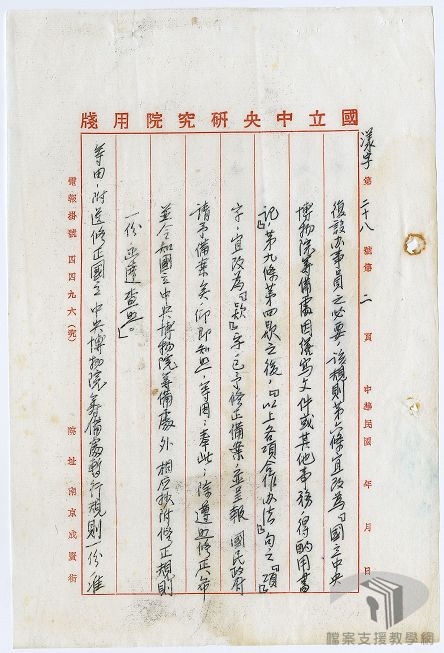 國立中央研究院用牋
漾字第二十八號第二頁 中華民國 年 月 日
復設辦事員之必要，該規則第六條宜改為「國立中央
博物院籌備處因繕寫文件或其他事務，得酌用書
記」，第九條第四款之後，「以上各項合作辦法」句之「項」
字，宜改為「款」字，已予修正備案，並呈報國民政府
請予備案矣，仰即知照，等因；奉此，除遵照修正並
並令知國立中央博物院籌備處外，相應檢附修正規則
一份函達查照。」
等由，附送修正國立中央博物院籌備處暫行規則一份准
電報掛號 四四九六(完) 院址南京成賢街
檔案支援教學網